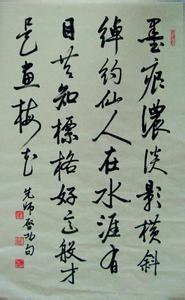 墨痕濃淡影橫斜
綽約仙人在水涯有
目共知標格好這般才
是畫梅花
先師啟功句